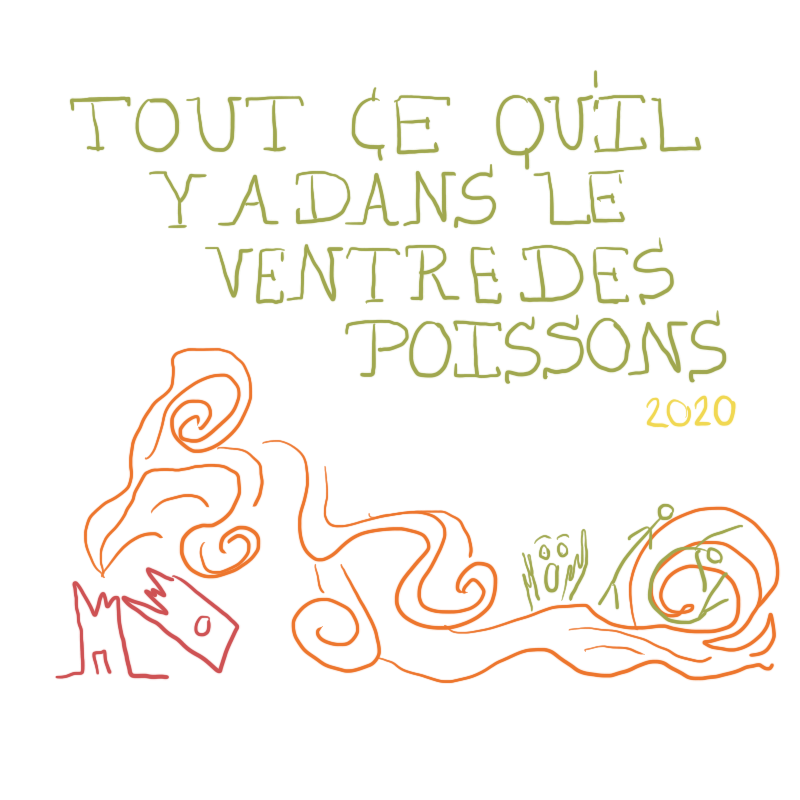 TOUT CE QU'IL
Y A DANS LE
VENTRE DES
POISSONS
2020